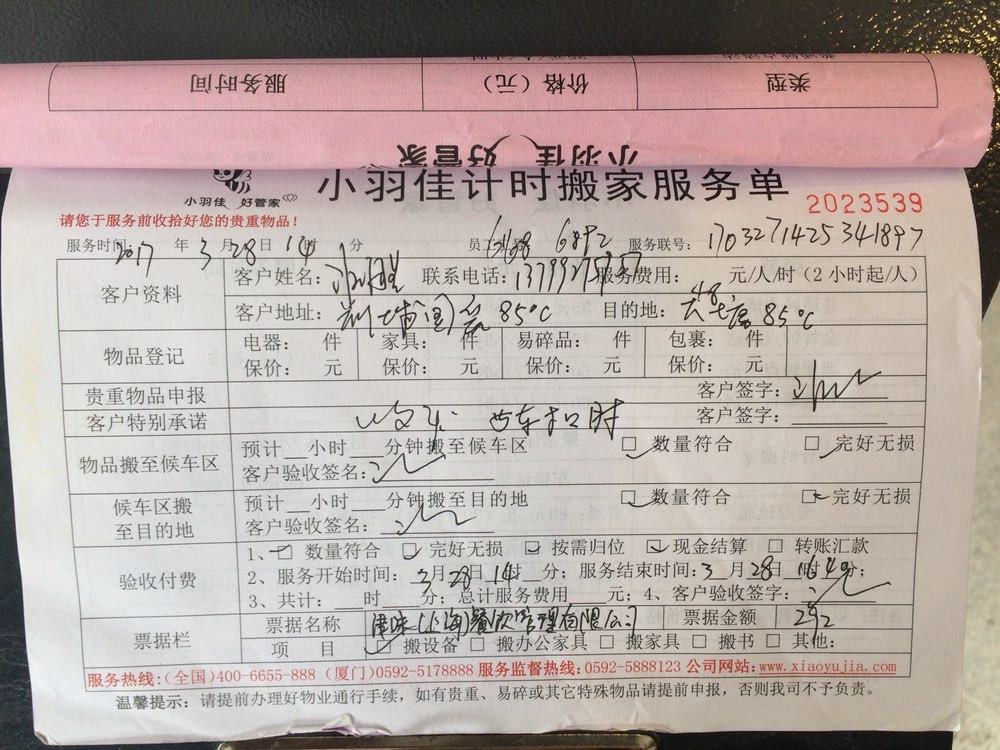 服务时间 价格（元） 类型
小羽佳 好管家
小羽佳 好管家
小羽佳计时搬家服务单
2023539
请您于服务前收拾好您的贵重物品！
服务时间 2017 年 3 月 28 日 14 时 分 员工 6168 6892 服务联号：1703271425341897
客户资料
客户姓名： 联系电话： 服务费用： 元/人/时（2小时起/人）
客户地址： 85℃ 目的地： 85℃
物品登记
电器： 件 家具： 件 易碎品： 件 包裹： 件
保价： 元 保价： 元 保价： 元 保价： 元
贵重物品申报 客户签字：
客户特别承诺 客户签字：
物品搬至候车区
预计__小时___分钟搬至候车区 □ 数量符合 □ 完好无损
客户验收签名：
候车区搬至目的地
预计__小时___分钟搬至目的地 □ 数量符合 □ 完好无损
客户验收签名：
验收付费
1、□ 数量符合 □ 完好无损 □ 按需归位 □ 现金结算 □ 转账汇款
2、服务开始时间：3月28日14时__分；服务结束时间：3月28日16时40分；
3、共计：___时___分；总计服务费用___元；4、客户验收签字：
票据栏
票据名称 津味（上海）餐饮管理有限公司 票据金额
项 目 □ 搬设备 □ 搬办公家具 □ 搬家具 □ 搬书 □ 其他：
服务热线：(全国)400-6655-888 (厦门)0592-5178888 服务监督热线：0592-5888123 公司网站：www.xiaoyujia.com
温馨提示：请提前办理好物业通行手续，如有贵重、易碎或其它特殊物品请提前申报，否则我司不予负责。